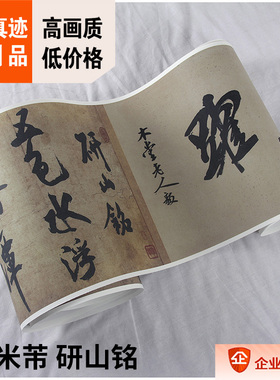 真迹
品
高画质
低价格
躍
木堂老人毅
研山銘
五色水浮
米芾 研山铭
企 企业